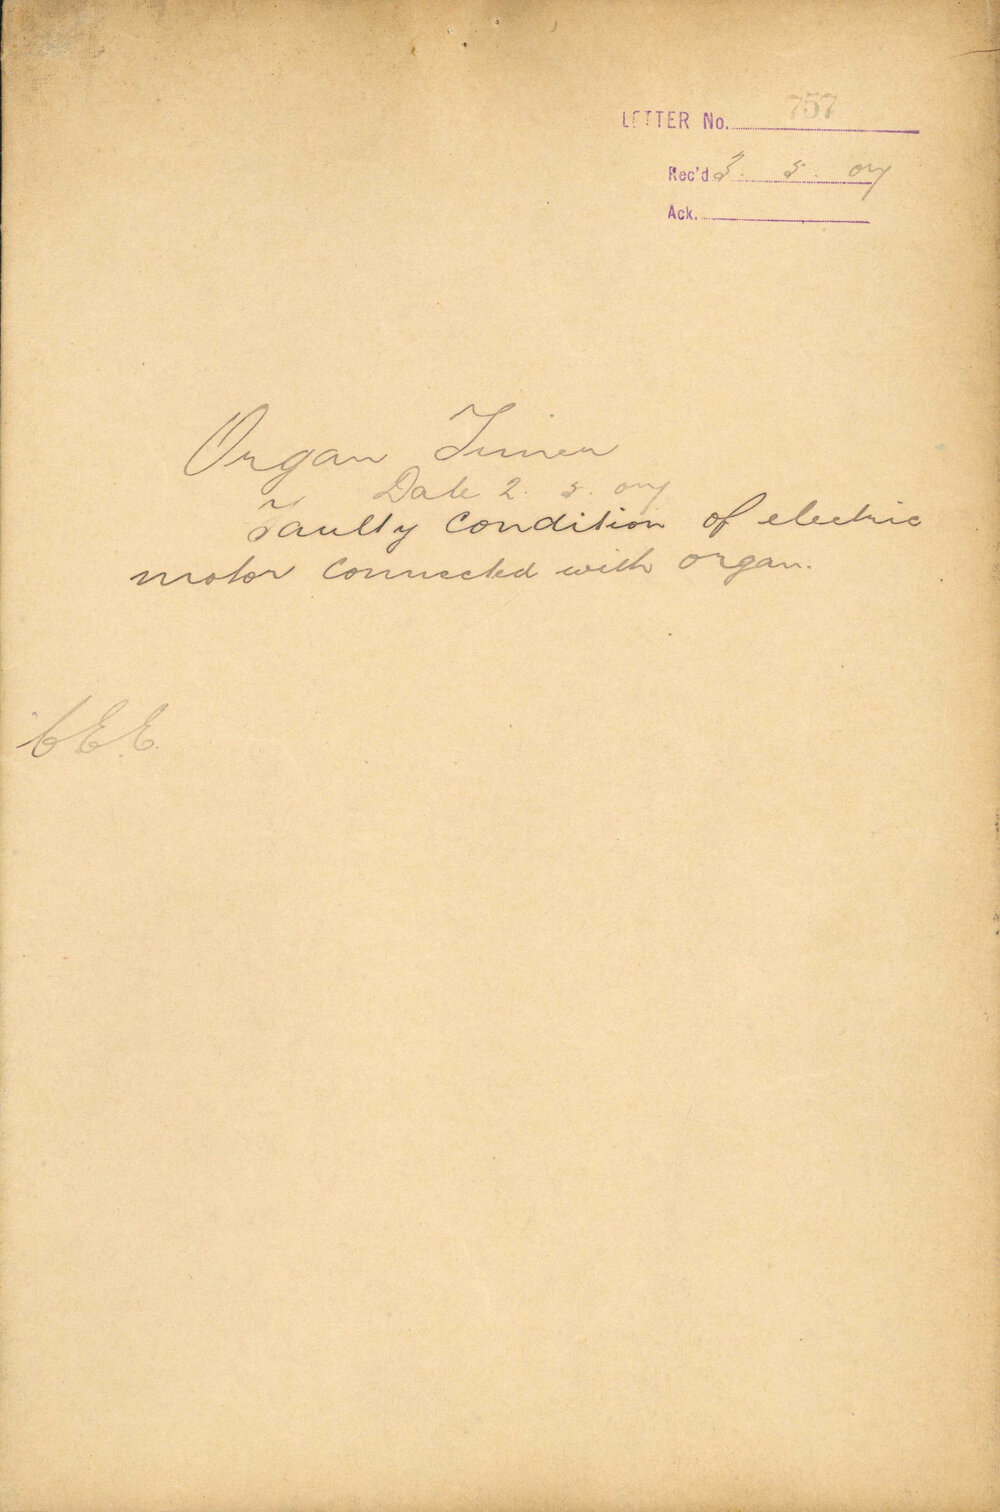 LETTER No. 757
Rec'd 3. 5. 07
Ack.
Organ Tuner
Date 2. 5. 07
Faulty condition of electric
motor connected with organ.
C.E.E.